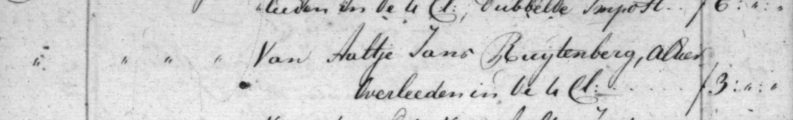 lieden in de 4 Cl; dubbelde Impost .. f 6:":"
" " " " Van Aaltje Jans Ruytenberg, alhier
overleeden in de 4 Cl: . . . . . . f 3:":"